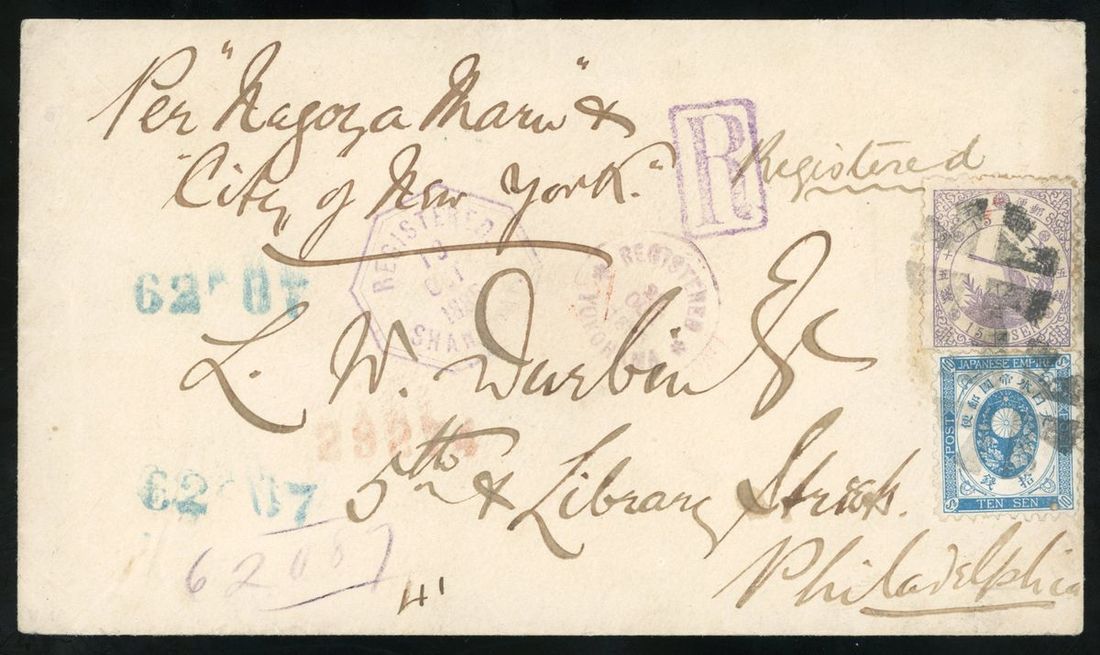 Per "Nagoya Maru" &
"City of New York."
R
Registered
REGISTERED
SHANGHAI
REGISTERED
YOKOHAMA
62087
L. W. Durbin Esq
5th & Library Streets.
Philadelphia
62087
62087
15 SEN
JAPANESE EMPIRE
POST
大日本帝國郵便
拾錢
TEN SEN